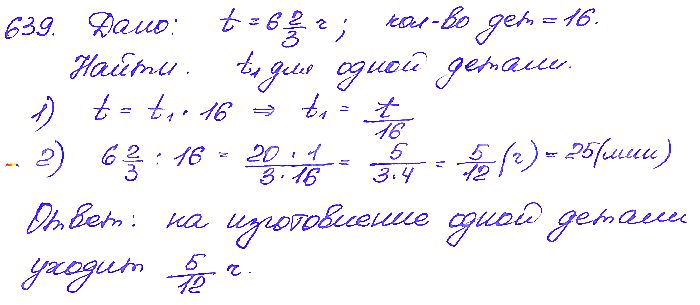 639. Дано: t = 6 2/3 ч; кол-во дет = 16.
Найти. t₁ для одной детали.
1) t = t₁ · 16 ⇒ t₁ = t/16
2) 6 2/3 : 16 = (20 · 1)/(3 · 16) = 5/(3 · 4) = 5/12 (ч) = 25 (мин)
Ответ: на изготовление одной детали
уходит 5/12 ч.